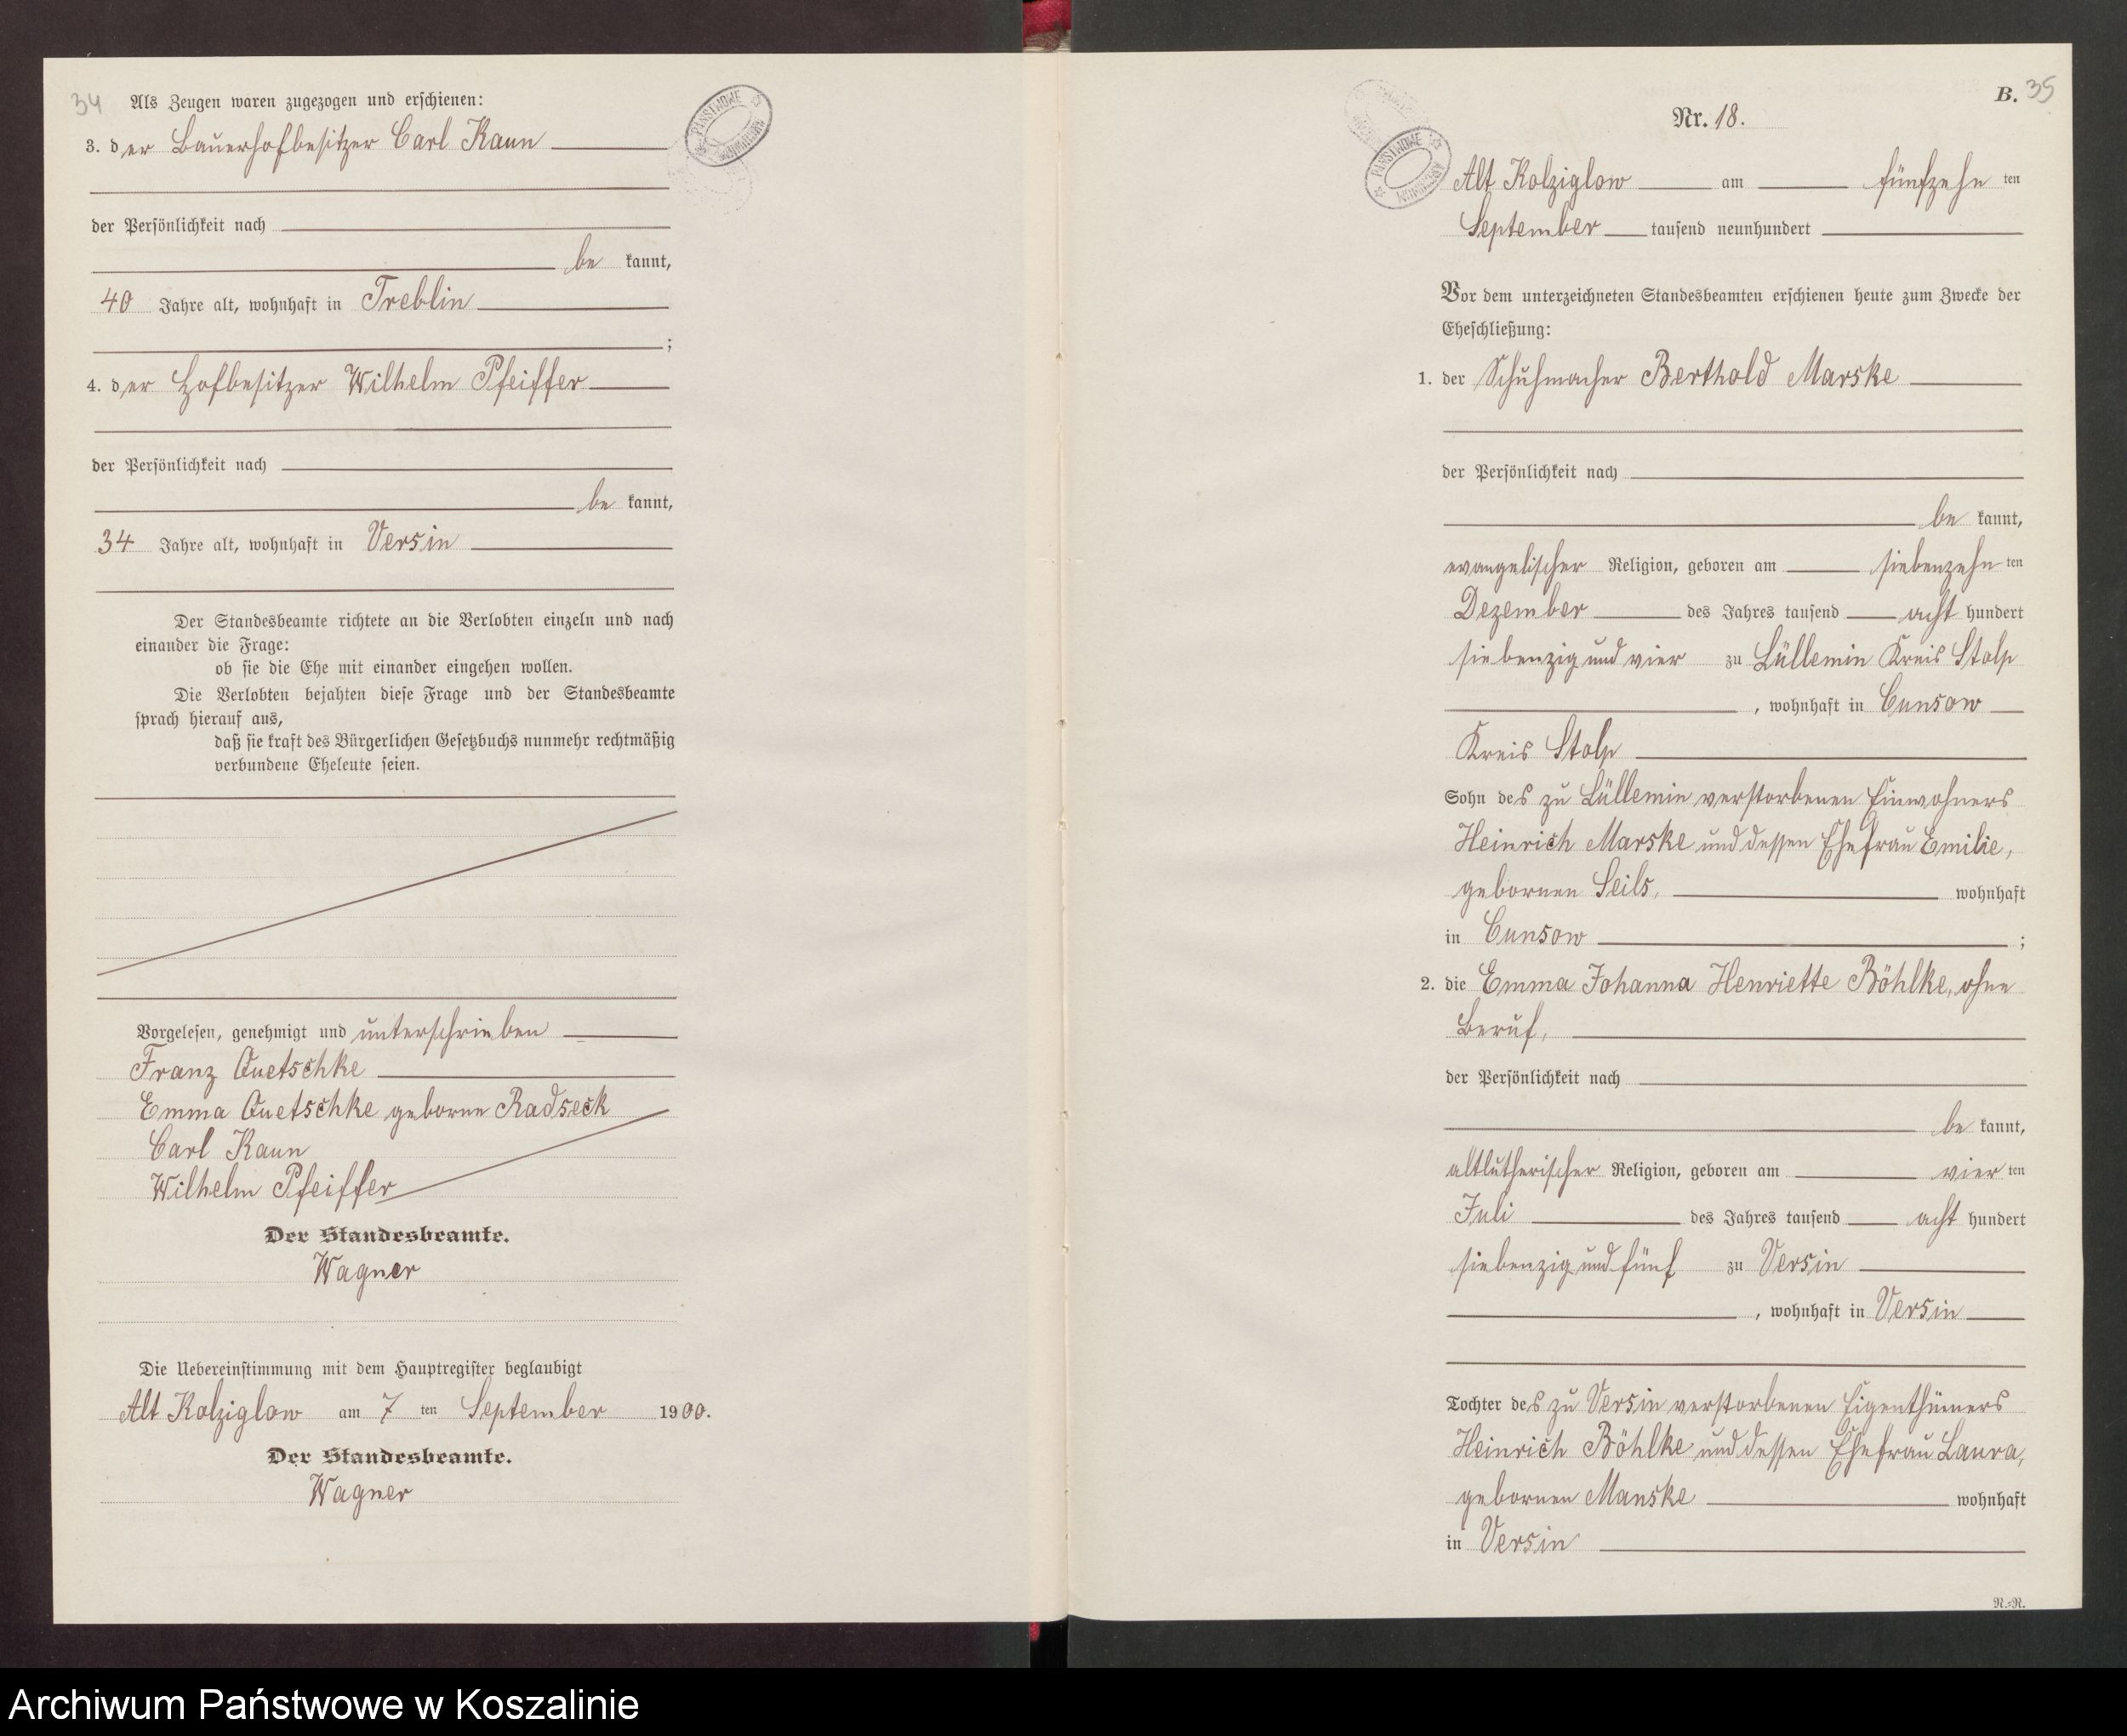 34
Als Zeugen waren zugezogen und erschienen:
3. der Bauerhofbesitzer Carl Kaun
der Persönlichkeit nach
be kannt,
40 Jahre alt, wohnhaft in Treblin
;
4. der Hofbesitzer Wilhelm Pfeiffer
der Persönlichkeit nach
be kannt,
34 Jahre alt, wohnhaft in Versin
Der Standesbeamte richtete an die Verlobten einzeln und nach
einander die Frage:
ob sie die Ehe mit einander eingehen wollen.
Die Verlobten bejahten diese Frage und der Standesbeamte
sprach hierauf aus,
daß sie kraft des Bürgerlichen Gesetzbuchs nunmehr rechtmäßig
verbundene Eheleute seien.
Vorgelesen, genehmigt und unterschrieben
Franz Quetschke
Emma Quetschke geborne Radseck
Carl Kaun
Wilhelm Pfeiffer
Der Standesbeamte.
Wagner
Die Uebereinstimmung mit dem Hauptregister beglaubigt
Alt Kolziglow am 7 ten September 1900.
Der Standesbeamte.
Wagner
PAŃSTWOWE
B. 35
Nr. 18.
PAŃSTWOWE
Alt Kolziglow am fünfzehn ten
September tausend neunhundert
Vor dem unterzeichneten Standesbeamten erschienen heute zum Zwecke der
Eheschließung:
1. der Schuhmacher Berthold Marske
der Persönlichkeit nach
be kannt,
evangelischer Religion, geboren am siebenzehn ten
Dezember des Jahres tausend acht hundert
siebenzig und vier zu Lüllemin Kreis Stolp
, wohnhaft in Cunsow
Kreis Stolp
Sohn des zu Lüllemin verstorbenen Einwohners
Heinrich Marske und dessen Ehefrau Emilie,
gebornen Seils, wohnhaft
in Cunsow ;
2. die Emma Johanna Henriette Böhlke, ohne
Beruf,
der Persönlichkeit nach
be kannt,
altlutherischer Religion, geboren am vier ten
Juli des Jahres tausend acht hundert
siebenzig und fünf zu Versin
, wohnhaft in Versin
Tochter des zu Versin verstorbenen Eigenthümers
Heinrich Böhlke und dessen Ehefrau Laura,
gebornen Manske wohnhaft
in Versin
N.-N.
Archiwum Państwowe w Koszalinie